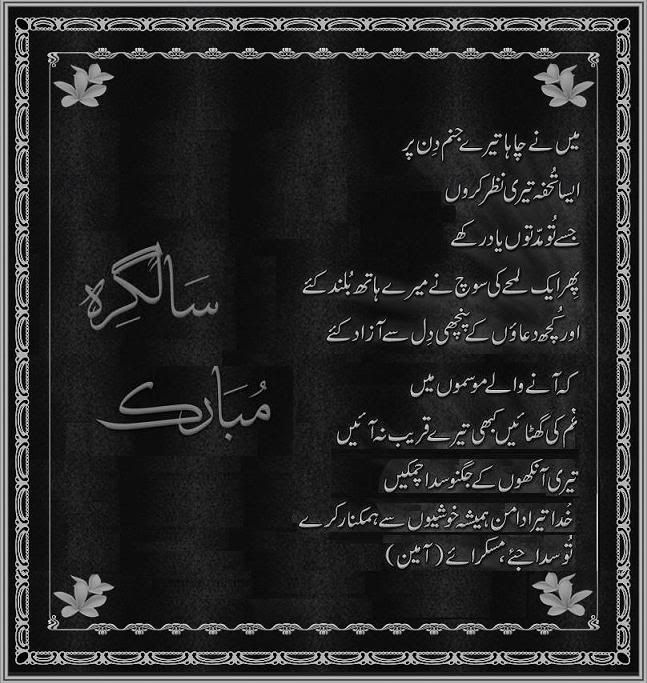 میں نے چاہا تیرے جنم دِن پر
ایسا تُحفہ تیری نظر کروں
جسے تُو مدّتوں یاد رکھے
پِھر ایک لمحے کی سوچ نے میرے ہاتھ بُلند کئے
اور کُچھ دعاؤں کے پنچھی دِل سے آزاد کئے
کہ آنے والے موسموں میں
غم کی گھٹائیں کبھی تیرے قریب نہ آئیں
تیری آنکھوں کے جگنو سدا چمکیں
خُدا تیرا دامن ہمیشہ خوشیوں سے ہمکنار کرے
تُو سدا جئے، مسکرائے (آمین)
سَالگِرہ
مُبَارک